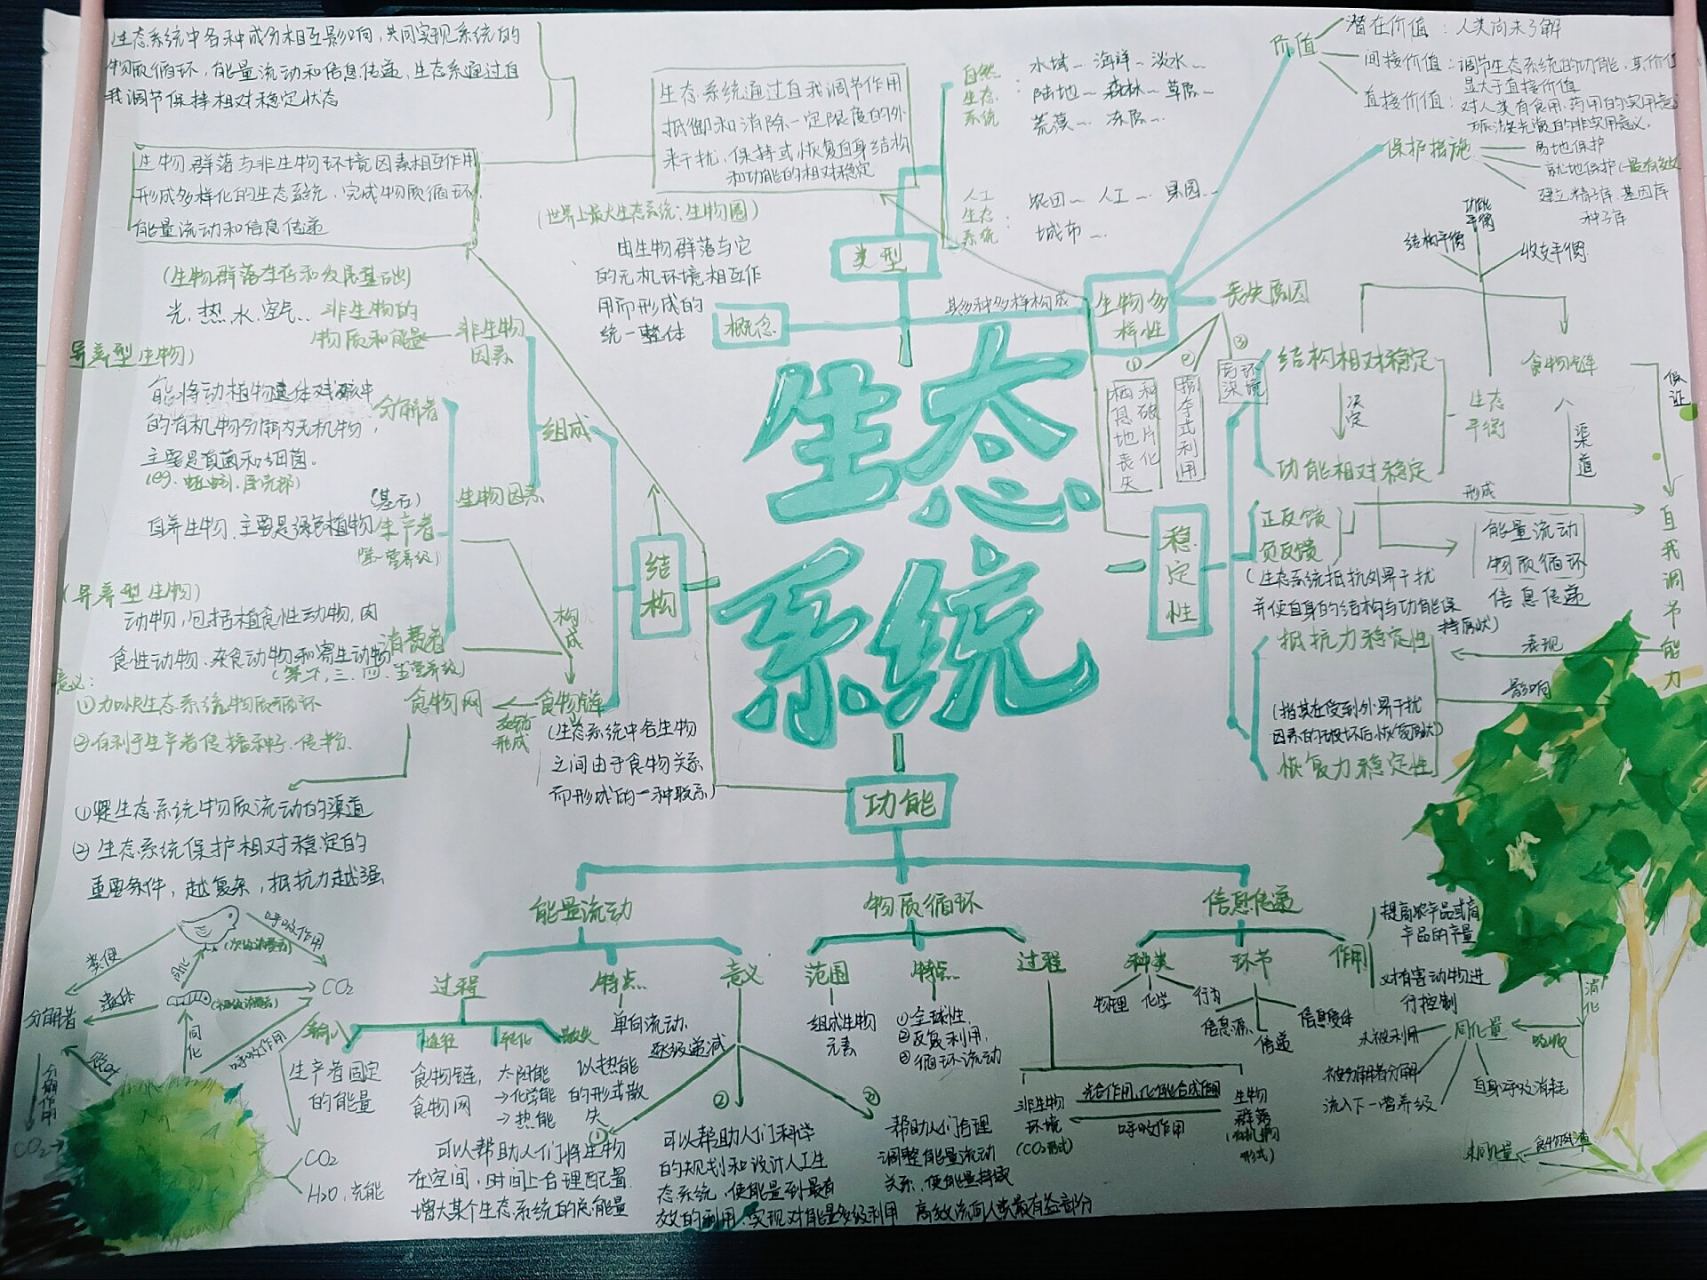 生态系统中各种成分相互影响,共同实现系统的
物质循环,能量流动和信息传递,生态系通过自
我调节保持相对稳定状态
生物群落与非生物环境因素相互作用
形成多样化的生态系统,完成物质循环,
能量流动和信息传递
生态系统通过自我调节作用
抵御和消除一定限度的外
来干扰,保持或恢复自身结构
和功能的相对稳定
(世界上最大生态系统:生物圈)
由生物群落与它
的无机环境相互作
用而形成的
统一整体
概念
类型
自然
生态
系统:
水域 海洋 淡水
陆地 森林 草原
荒漠 冻原
人工
生态
系统:
农田 人工 果园
城市
其多种多样构成
生物多
样性
价值
潜在价值:人类尚未了解
间接价值:调节生态系统的功能,其价值
显大于直接价值
直接价值:对人类有食用,药用的实用意
保护措施
易地保护
就地保护(最有效
建立精子库,基因库
种子库
丧失原因
①
②
③
栖息地丧失
和破碎片化
掠夺式利用
环境
功能
平衡
结构平衡
收支平衡
结构相对稳定
决定
功能相对稳定
生态
平衡
食物链
渠道
保证
形成
自我调节能力
能量流动
物质循环
信息传递
正反馈
负反馈
稳定性
(生态系统抵抗外界干扰
并使自身的结构与功能保
持原状)
抵抗力稳定性
表现
影响
(指其在受到外界干扰
因素的破坏后恢复原状)
恢复力稳定性
生态
系统
(生物群落生存和发展基础)
光,热,水,空气... 非生物的
物质和能量
非生物
因素
异养型生物)
能将动植物遗体残骸中
的有机物分解为无机物,
主要是真菌和细菌。
分解者
组成
生物因素
(基石)
自养生物,主要是绿色植物
生产者
第一营养级)
(异养型生物)
动物,包括植食性动物,肉
食性动物、杂食动物和寄生动物
消费者
构成
结构
意义:
①加快生态系统物质循环
②有利于生产者传播种子、传粉
食物网
形成
食物链
(生态系统中各生物
之间由于食物关系
而形成的一种联系)
①是生态系统物质流动的渠道
②生态系统保护相对稳定的
重要条件,越复杂,抵抗力越强
功能
能量流动
物质循环
信息传递
过程
特点
意义
输入
途径
转化
散失
生产者固定
的能量
食物链,
食物网
太阳能
→化学能
→热能
以热能
的形式散
失
单向流动、
逐级递减
①
②
③
可以帮助人们将生物
在空间,时间上合理配置
增大某个生态系统的总能量
可以帮助人们科学
的规划和设计人工生
态系统,使能量到最有
效的利用,实现对能量多级利用
帮助人们合理
调整能量流动
关系,使能量持续
高效流向人类最有益部分
范围
特点
过程
组成生物
元素
①全球性,
②反复利用,
③循环流动
非生物
环境
(CO₂形式)
光合作用,化能合成作用
呼吸作用
生物
群落
(有机物
形式)
种类
环节
作用
物理
化学
行为
信息源
信息受体
传递
提高农产品或畜
产品的产量
对有害动物进
行控制
消化
吸收
同化量
未被利用
被分解者分解
流入下一营养级
自身呼吸消耗
呼吸作用
(次级消费者)
粪便
同化
遗体
(初级消费者)
CO₂
分解者
同化
呼吸作用
分解作用
CO₂
CO₂
H₂O,光能